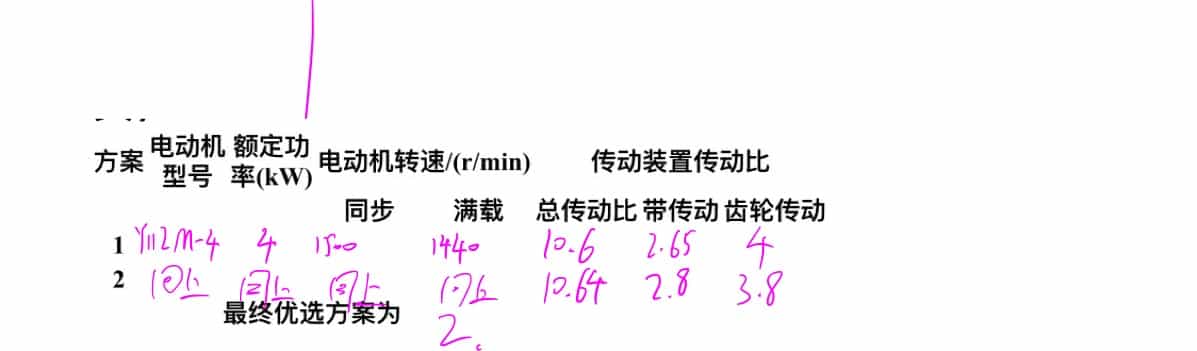 方案 电动机型号 额定功率(kW) 电动机转速/(r/min) 传动装置传动比
同步 满载 总传动比 带传动 齿轮传动
1 Y112M-4 4 1500 1440 10.6 2.65 4
2 同上 同上 同上 同上 10.64 2.8 3.8
最终优选方案为 2。